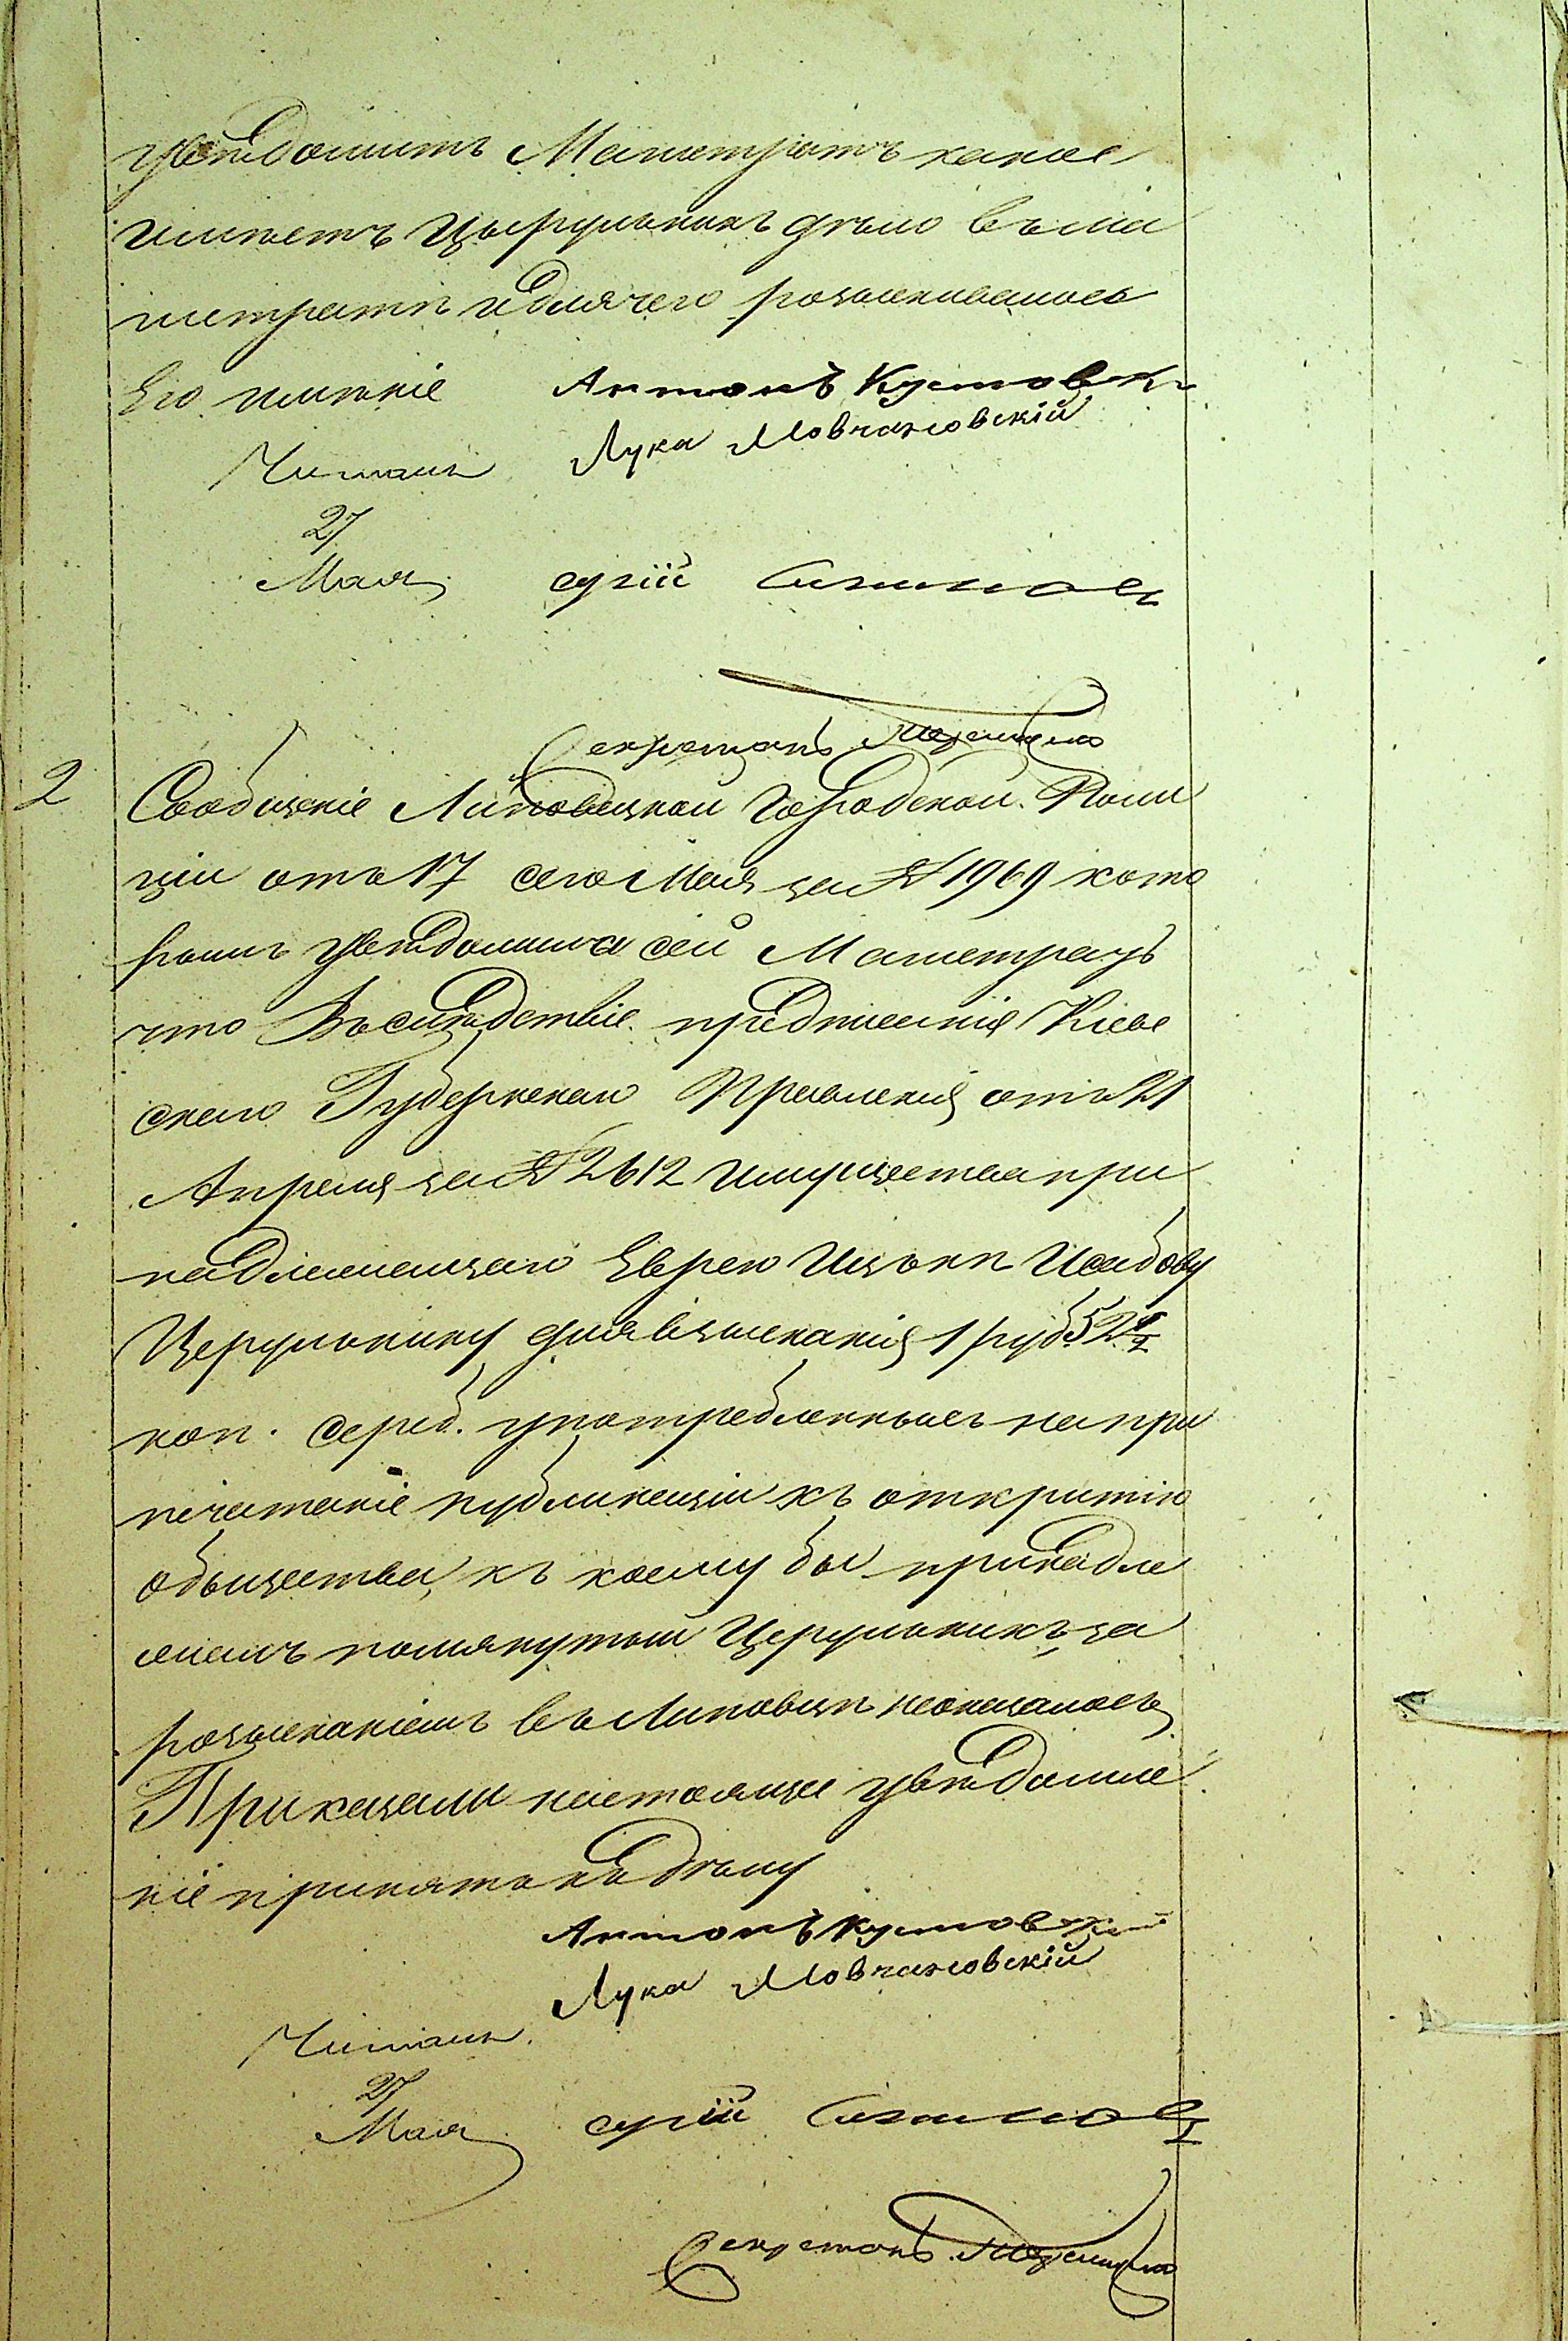 увѣдомить Магистратъ какое
имѣетъ Цырульникъ дѣло въ ма
гистратѣ и для чего розыскивалось
Его имѣніе Антонъ Кустовскі
Лука Мовчановскій
Читалъ
27
Мая
Секретарь
2
Сообщеніе Липовецкой Городской Поли
ціи отъ 17 сего Мая за № 1969 кото
рымъ увѣдомила сей Магистратъ
что Вълѣдствіе предписанія Кіев
скаго Губернскаго Правленія отъ 21
Апреля за № 2612 имущества при
надлежащаго Еврею Ицькѣ Иосбову
Церульнику для взысканія 1 руб 52
коп. сереб. употребленныхъ на при
печатаніе публикаціи къ открытію
общества, къ коему бы принадле
жалъ помянутый Церульникъ, за
розысканіемъ въ Липовцѣ неоказалось,
Приказали настоящее увѣдомле
ніе принять къ дѣлу
Антонъ Кустовскій
Лука Мовчановскій
Читалъ
27
Мая
Секретарь